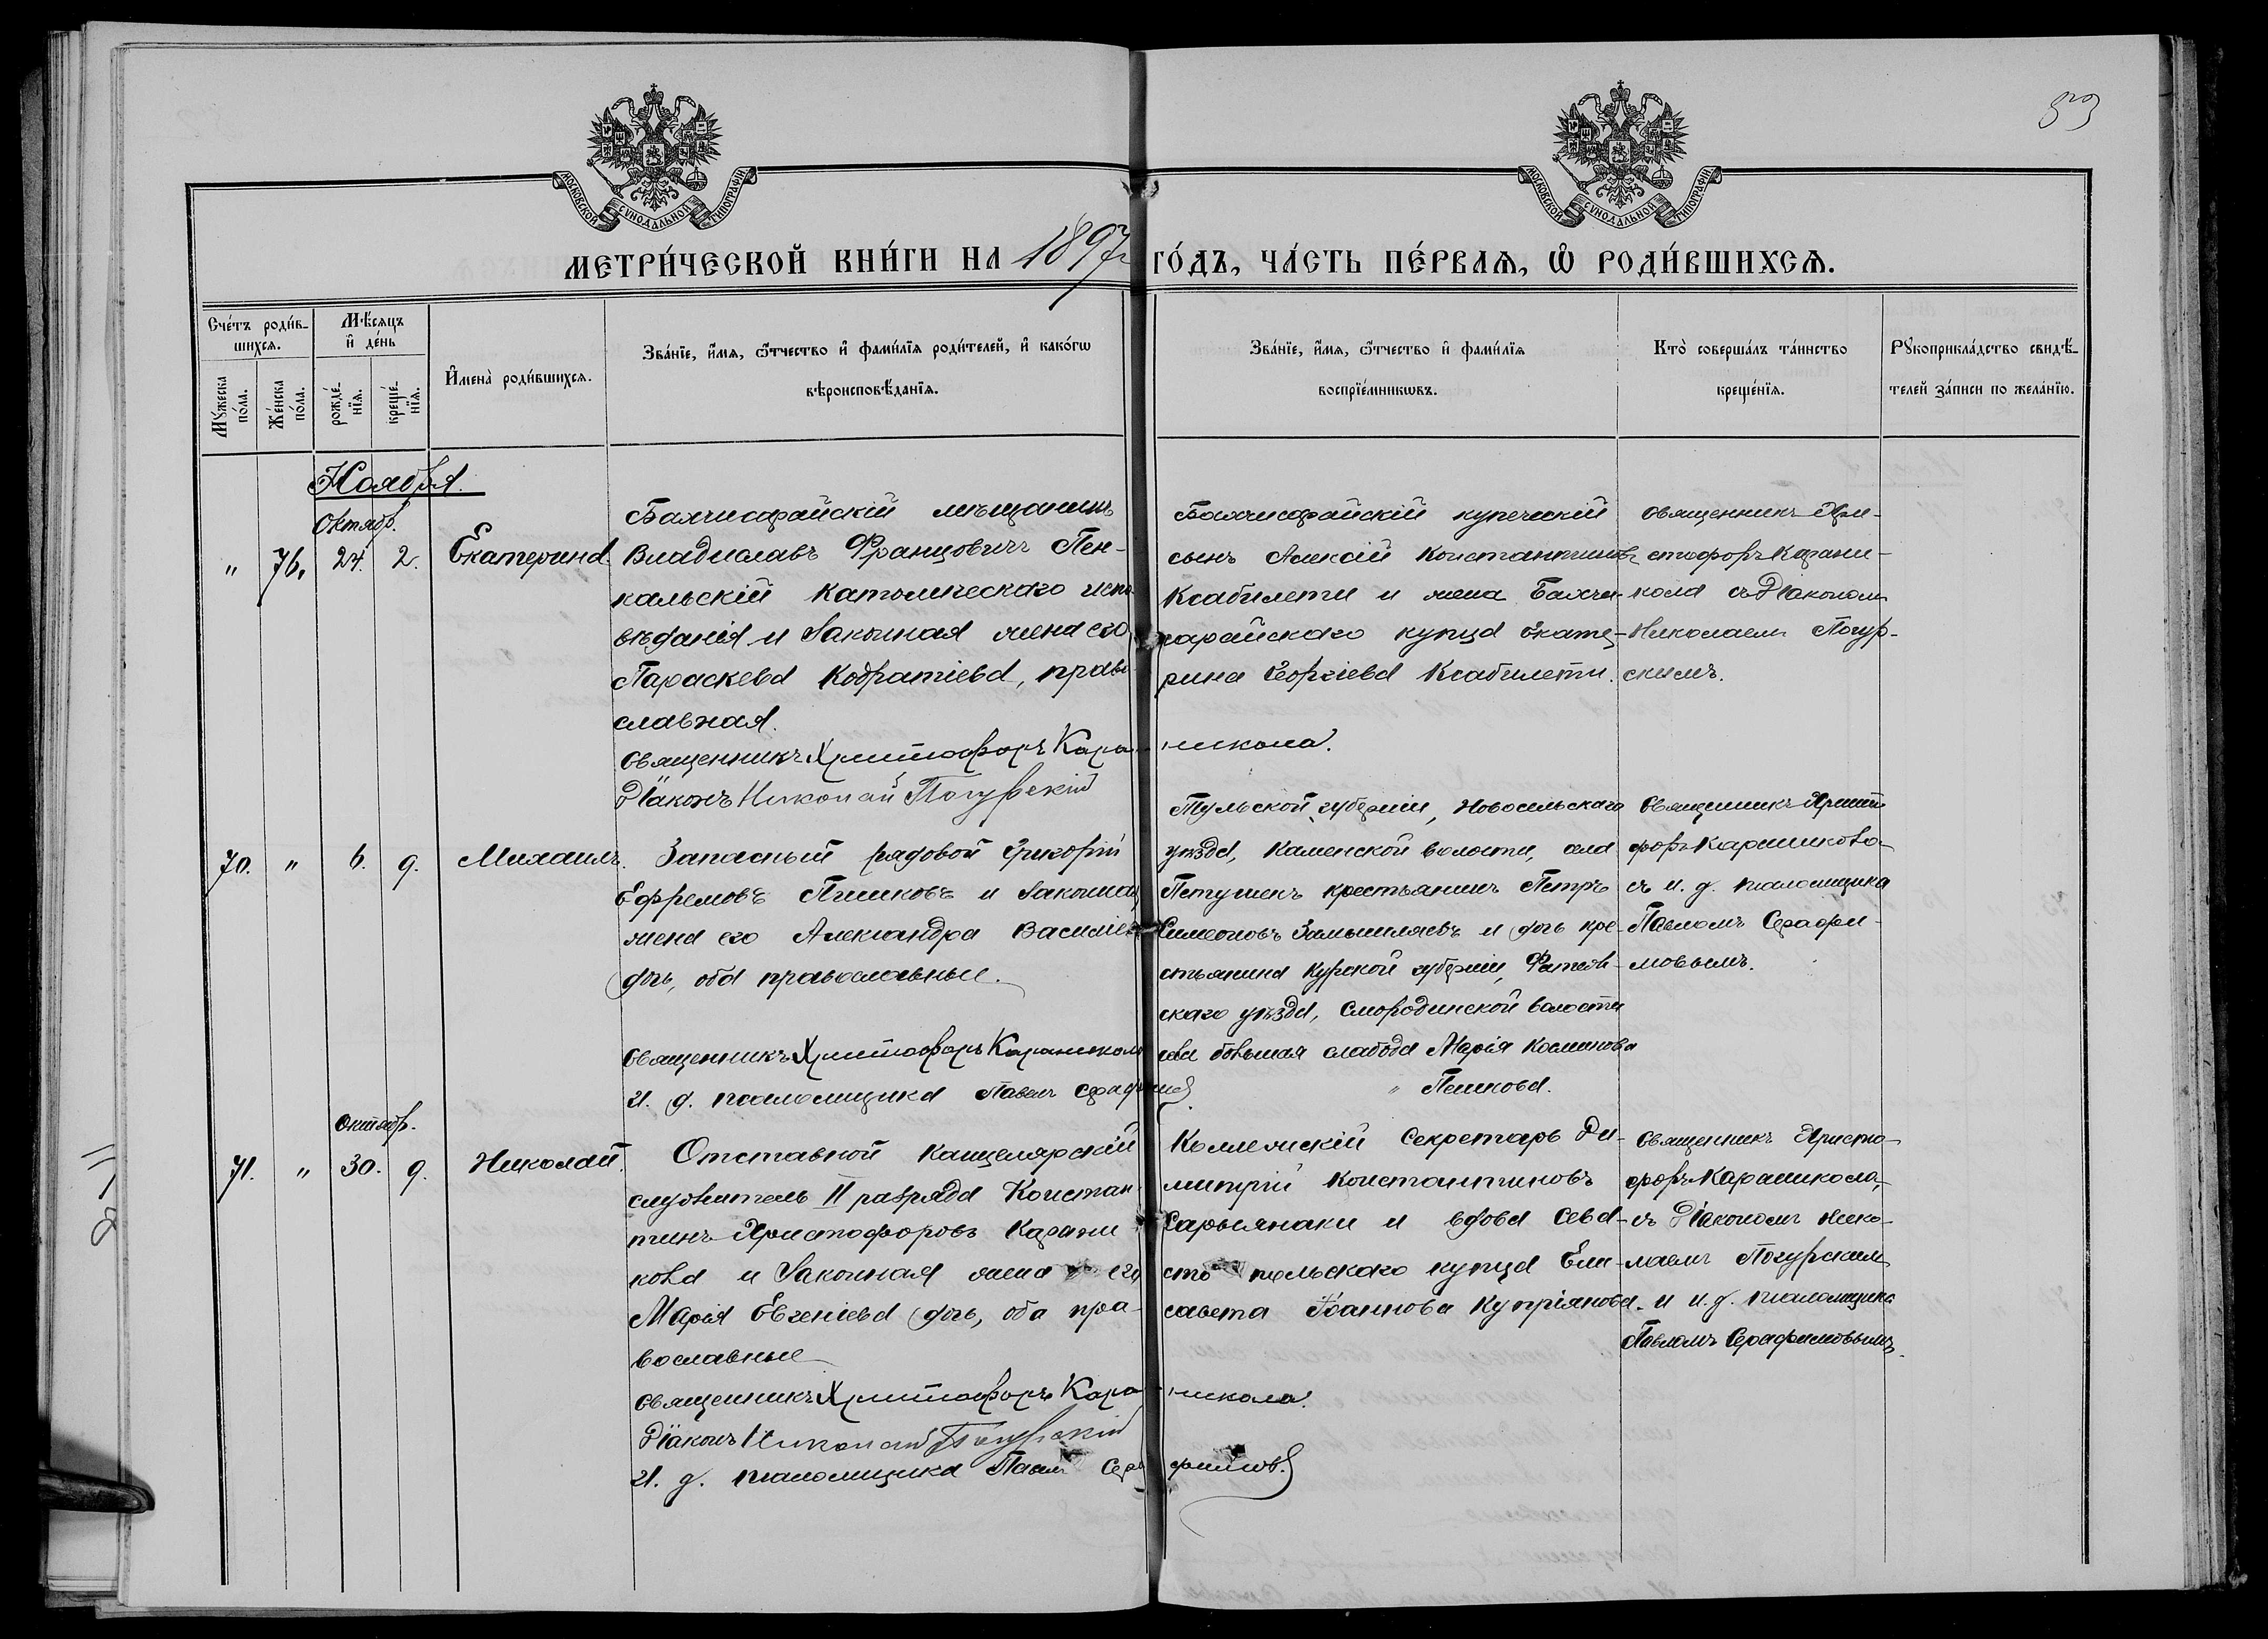 53
МОСКОВСКОЙ СѴНОДАЛЬНОЙ ТИПОГРАФІИ
МОСКОВСКОЙ СѴНОДАЛЬНОЙ ТИПОГРАФІИ
МЕТРИ́ЧЕСКОЙ КНИ́ГИ НА 1897 ГО́ДЪ, ЧА́СТЬ ПЕ́РВАѦ, Ѡ҆ РОДИ́ВШИХСѦ.
Сче́тъ роди́в-
шихсѧ.
Мꙋ́жеска
по́ла.
Же́нска
по́ла.
Мѣ́сѧцъ
и҆ де́нь
рожде́-
нїѧ.
креще́-
нїѧ.
И҆мена̀ роди́вшихсѧ.
Зва́нїе, и҆́мѧ, ѻ҆́тчество и҆ фами́лїѧ роди́телей, и҆ како́гѡ
вѣроисповѣ́данїѧ.
Зва́нїе, и҆́мѧ, ѻ҆́тчество и҆ фами́лїѧ
воспрїе́мникѡвъ.
Кто̀ соверша́лъ та́инство
креще́нїѧ.
Рꙋкоприкла́дство свидѣ́-
телей за́писи по жела́нїю.
Ноября.
Октяб.
" 76. 24. 2. Екатерина.
Бахчисарайскій мѣщанинъ
Владиславъ Францовичъ Пен-
кальскій католическаго испо
вѣданія и законная жена его
Параскева Кодратіева, право
славная.
Священникъ Христофоръ Кара-никола.
Діаконъ Николай Погурскій
Бахчисарайскій купеческій
сынъ Алексій Константиновъ
Ксабилети и жена Бахчи-
сарайскаго купца Екате-
рина Георгіева Ксабилети.
Священникъ Хри-
стофоръ Карани-
кола съ Діакономъ
Николаемъ Погур-
скимъ.
70. " 6. 9. Михаилъ.
Запасный рядовой Григорій
Ефремовъ Пешковъ и законная
жена его Александра Василіева
дочь, оба православные.
Священникъ Христофоръ Караникола
И. д. псаломщика Павелъ Серафимов
Тульской губерніи, Новосильскаго
уѣзда, Каменской волости, села
Петушекъ крестьянинъ Петръ
Симеоновъ Замышляевъ и дочь кре-
стьянина Курской губерніи, Фатеж-
скаго уѣзда, Смородинской волости
села Большая слабода Марія Косминова
" Пешкова.
Священникъ Христо
форъ Караникола
съ и. д. псаломщика
Павломъ Серафи-
мовымъ.
Октябр.
71. " 30. 9. Николай.
Отставной канцелярскій
служитель II разряда Констан-
тинъ Христофоровъ Карани
кола и законная жена его
Марія Евгеніева дочь, оба пра-
вославные
Священникъ Христофоръ Кара-никола.
Діаконъ Николай Погурскій
И. д. псаломщика Павелъ Серафимов.
Коллежскій Секретарь Ди-
митрій Константиновъ
Сарыянаки и вдова Сева-
стопольскаго купца Ели-
савета Іоаннова Купріянова.
Священникъ Христо-
форъ Караникола,
съ Діакономъ Нико-
лаемъ Погурскимъ
и и. д. псаломщика
Павломъ Серафимовымъ.